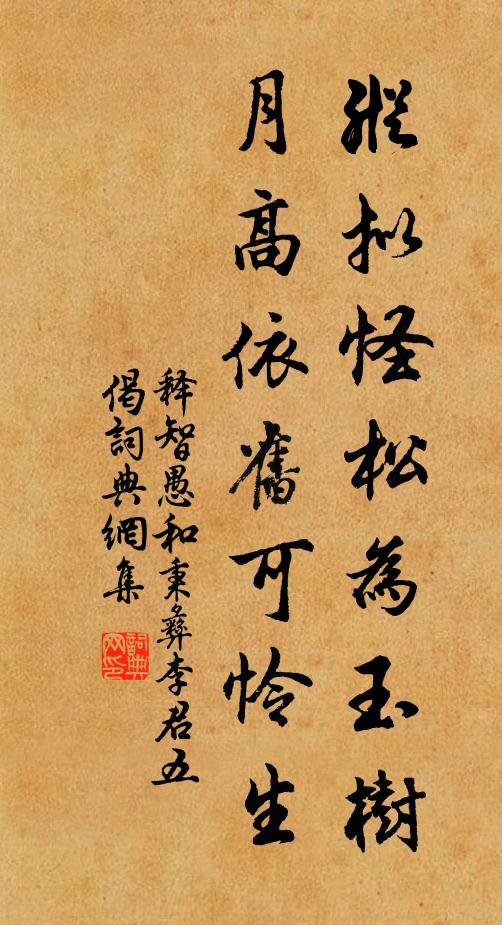 縱拟怪松為玉樹
月高依舊可怜生
释智愚和秉彝李君五
偈詞典網集
詞典网印